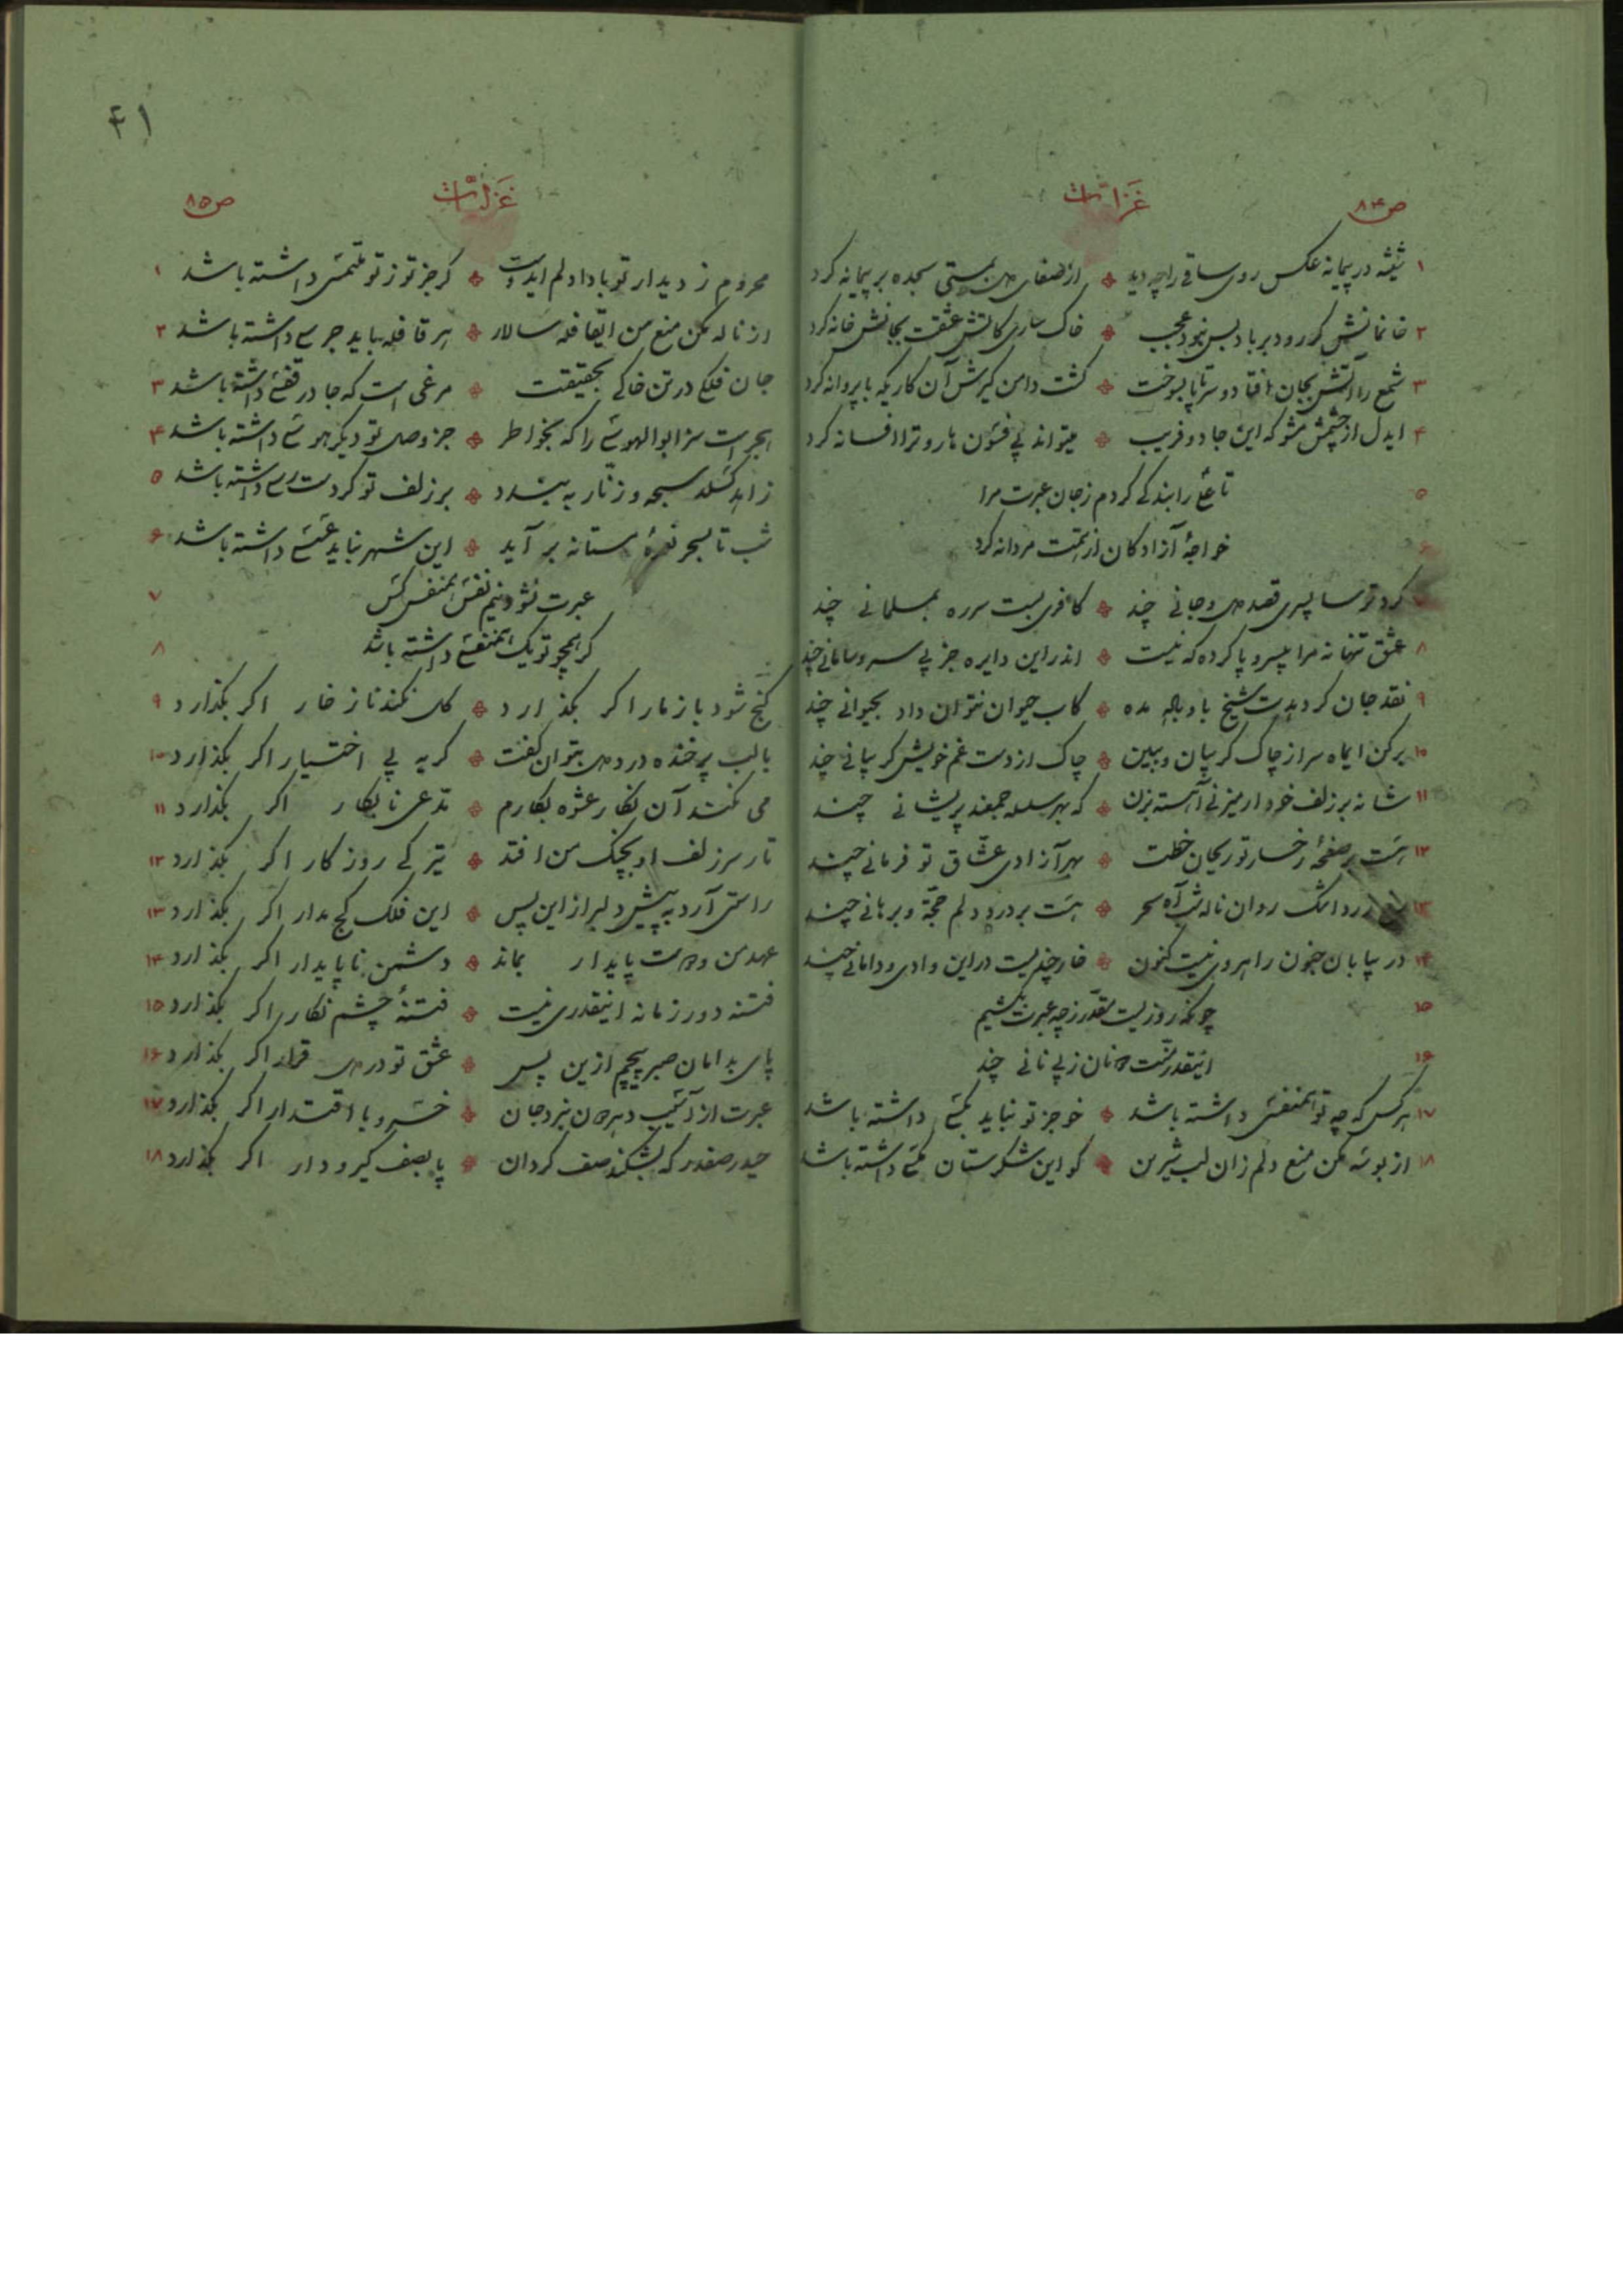 ص۸۴ غزلیّات
۱ شیشه در پیمانه عکس روی ساقی را چه دید ❖ از صفای می بمستی سجده بر پیمانه کرد
۲ خانمانش کر رود بر باد بس نبود عجب ❖ خاکساری کاتش عشقت بجانش خانه کرد
۳ شمع را آتش بجان افتاد و سر تا پا بسوخت ❖ کشت دامن کیرش آن کاریکه با پروانه کرد
۴ ایدل از چشمش مشو که این جادو فریب ❖ میتواند پی فسون هاروترا افسانه کرد
۵ تا علی را بندکی کردم ز جان عبرت مرا
خواجهٔ آزادکان از همت مردانه کرد
کرد ترسا پسری قصد دل و جانی چند ❖ کافری بست سر ره بمسلمانی چند
۸ عشق تنها نه مرا بیسر و پا کرده که نیست ❖ اندر این دایره جز بی سر و سامانی چند
۹ نقد جان کرد بدست شیخ باو باله مده ❖ کاب حیوان نتوان داد بحیوانی چند
۱۰ برکن ایماه سر از چاک کریبان و ببین ❖ چاک از دست غم خویش کریبانی چند
۱۱ شانه بر زلف خود ار میزنی آهسته بزن ❖ که بهر سلسه جمعند پریشانی چند
۱۲ هست بر صفحهٔ رخسار تو ریحان خطت ❖ بهر آزادی عشّاق تو فرمانی چند
۱۳ زرد اشک روان ناله شب آه سحر ❖ هست بر درد دلم حجّة و برهانی چند
۱۴ در بیابان جنون راهروی نیست کنون ❖ خار چندیست در این وادی و دامانی چند
۱۵ چونکه روزیست مقدّر ز چه عبرت بکشیم
۱۶ اینقدر منّت دونان ز پی نانی چند
۱۷ هرکس که چه تو همنفسی داشته باشد ❖ خو جز تو نباید بکسی داشته باشد
۱۸ از بوسه مکن منع دلم زان لب شیرین ❖ کو این شکرستان مکسی داشته باشد
۴۱
غزلیّات ص۸۵
محروم ز دیدار تو بادا دلم ایدوست ❖ کر جز تو ز تو ملتمسی داشته باشد ۱
از ناله مکن منع من ایقافله سالار ❖ هر قافله باید جرسی داشته باشد ۲
جان فلکی در تن خاکی بحقیقت ❖ مرغی است که جا در قفسی داشته باشد ۳
هجر است سزا بوالهوسی را که بخواطر ❖ جز وصل تو دیکر هوسی داشته باشد ۴
زاهد کسلد سبحه و زنّار به بندد ❖ بر زلف تو کر دست رسی داشته باشد ۵
شب تا بسحر نعرهٔ مستانه بر آید ❖ این شهر نباید عسسی داشته باشد ۶
عبرت نشود نیم نفس همنفس کس ۷
کر همچو تو یک همنفسی داشته باشد ۸
کنج شود باز مار اکر بکذارد ❖ کل نکند ناز خار اکر بکذارد ۹
با لب پر خنده درد دل بتوان کفت ❖ کریه بی اختیار اکر بکذارد ۱۰
می نکند آن نکار عشوه بکارم ❖ مدّعی نابکار اکر بکذارد ۱۱
تار سر زلف او بچنک من افتد ❖ تیرکی روزکار اکر بکذارد ۱۲
راستی آرد به پیش دلبر از این پس ❖ این فلک کج مدار اکر بکذارد ۱۳
عهد من و دوست پایدار بماند ❖ دشمن ناپایدار اکر بکذارد ۱۴
فتنه دور زمانه اینقدری نیست ❖ فتنهٔ چشم نکار اکر بکذارد ۱۵
پای بدامان صبر پیچم ازین پس ❖ عشق تو در دل قرار اکر بکذارد ۱۶
عبرت از آسیب دهر دون نبرد جان ❖ خسرو با اقتدار اکر بکذارد ۱۷
حیدر صفدر که بشکند صف کردان ❖ پا بصف کیرودار اکر بکذارد ۱۸